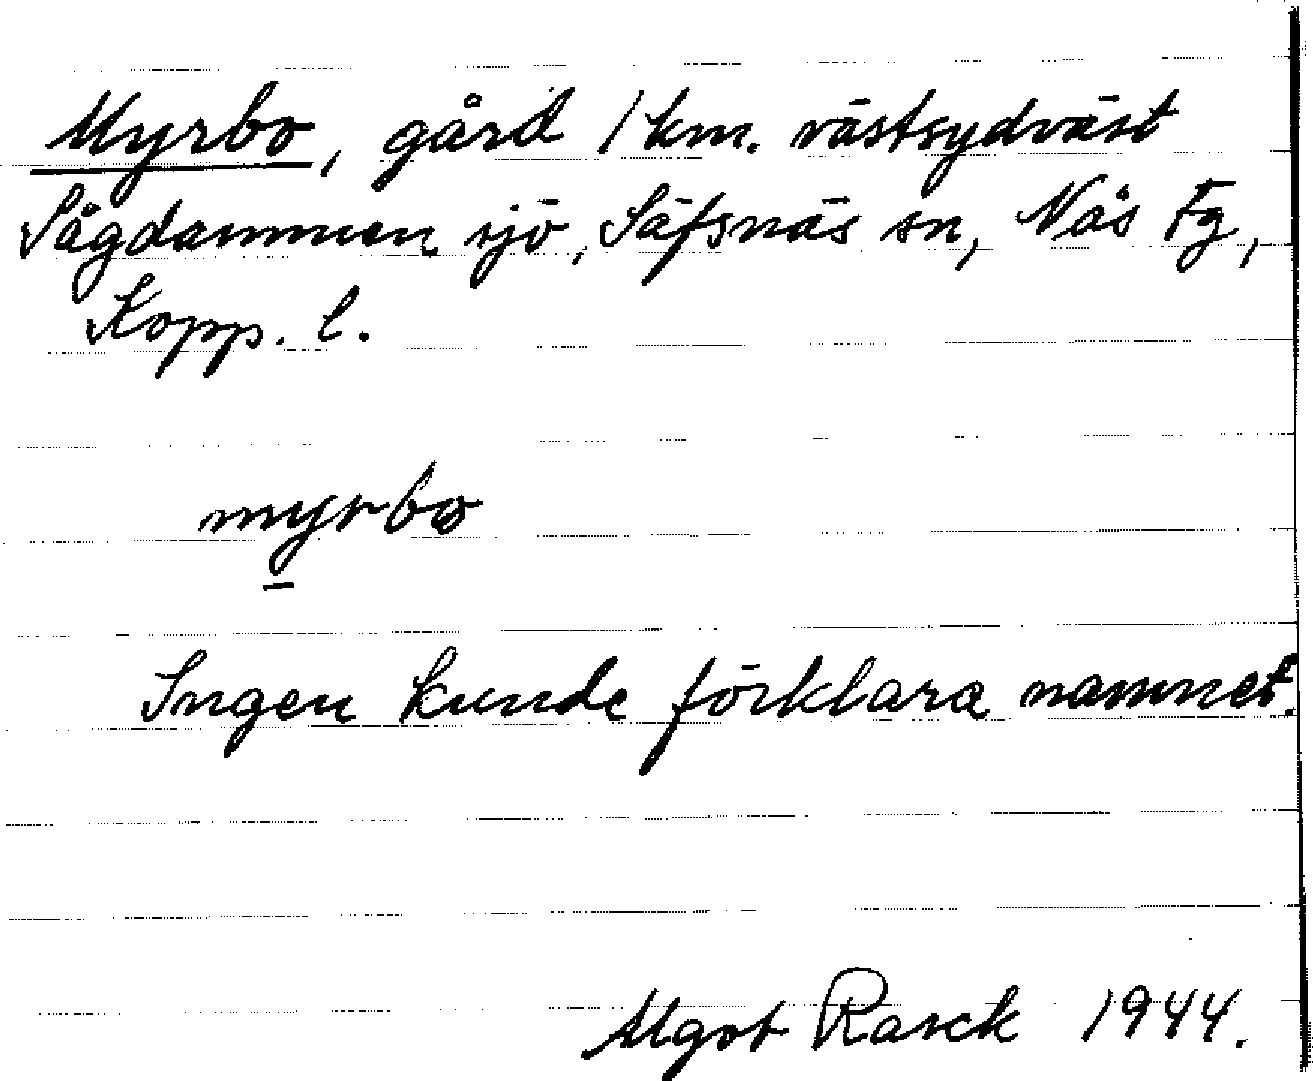 Myrbo, gård 1 km. västsydväst
Sågdammen sjö, Säfsnäs sn, Näs Fg,
Kopp. l.
myrbo
Ingen kunde förklara namnet.
Algot Rasck 1944.